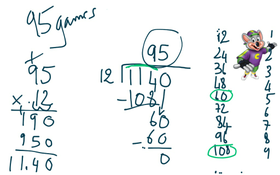 95 games
95
x.12
190
950
11.40
95
12 1140
-108
60
-60
0
12 1
24 2
48 4
60 5
72 6
84 7
96 8
108 9